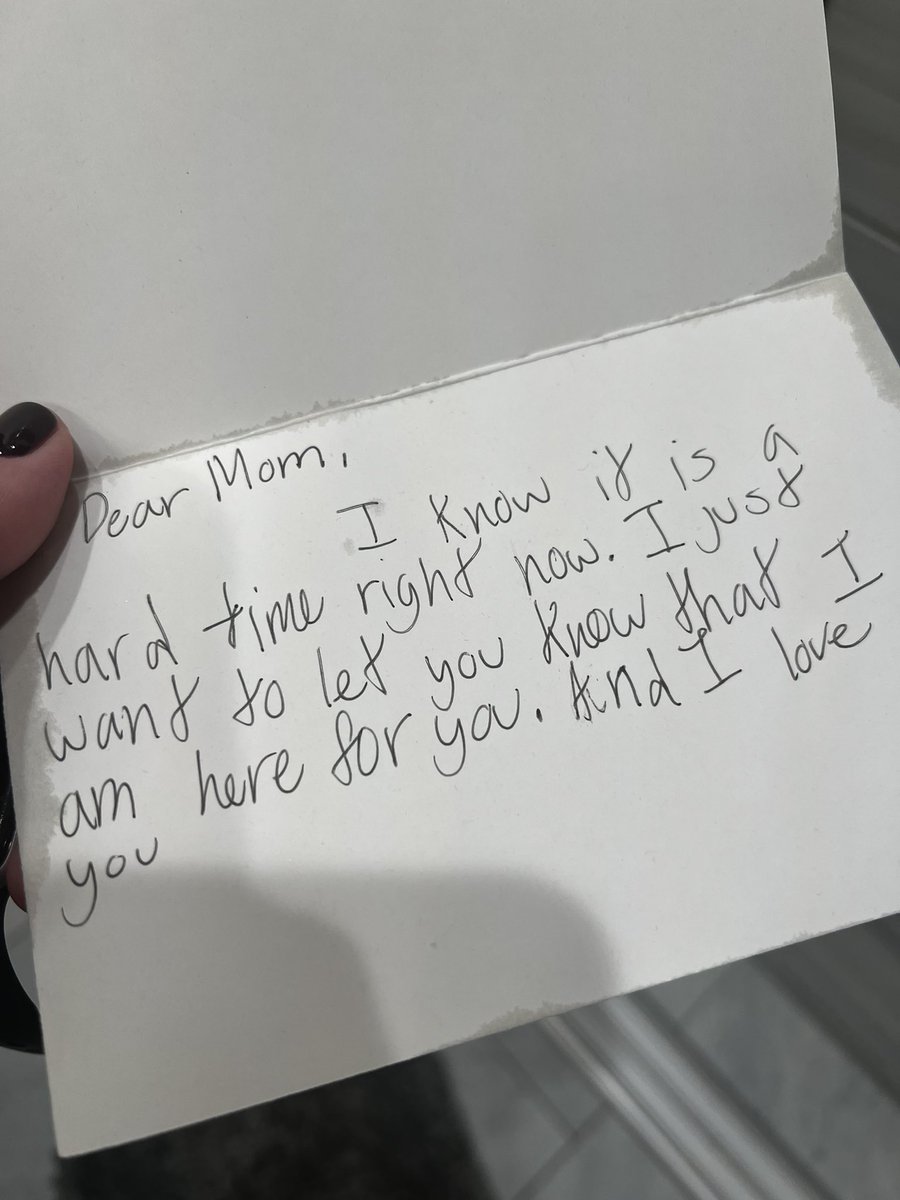 Dear Mom,
I know it is a
hard time right now. I just
want to let you know that I
am here for you. And I love
you